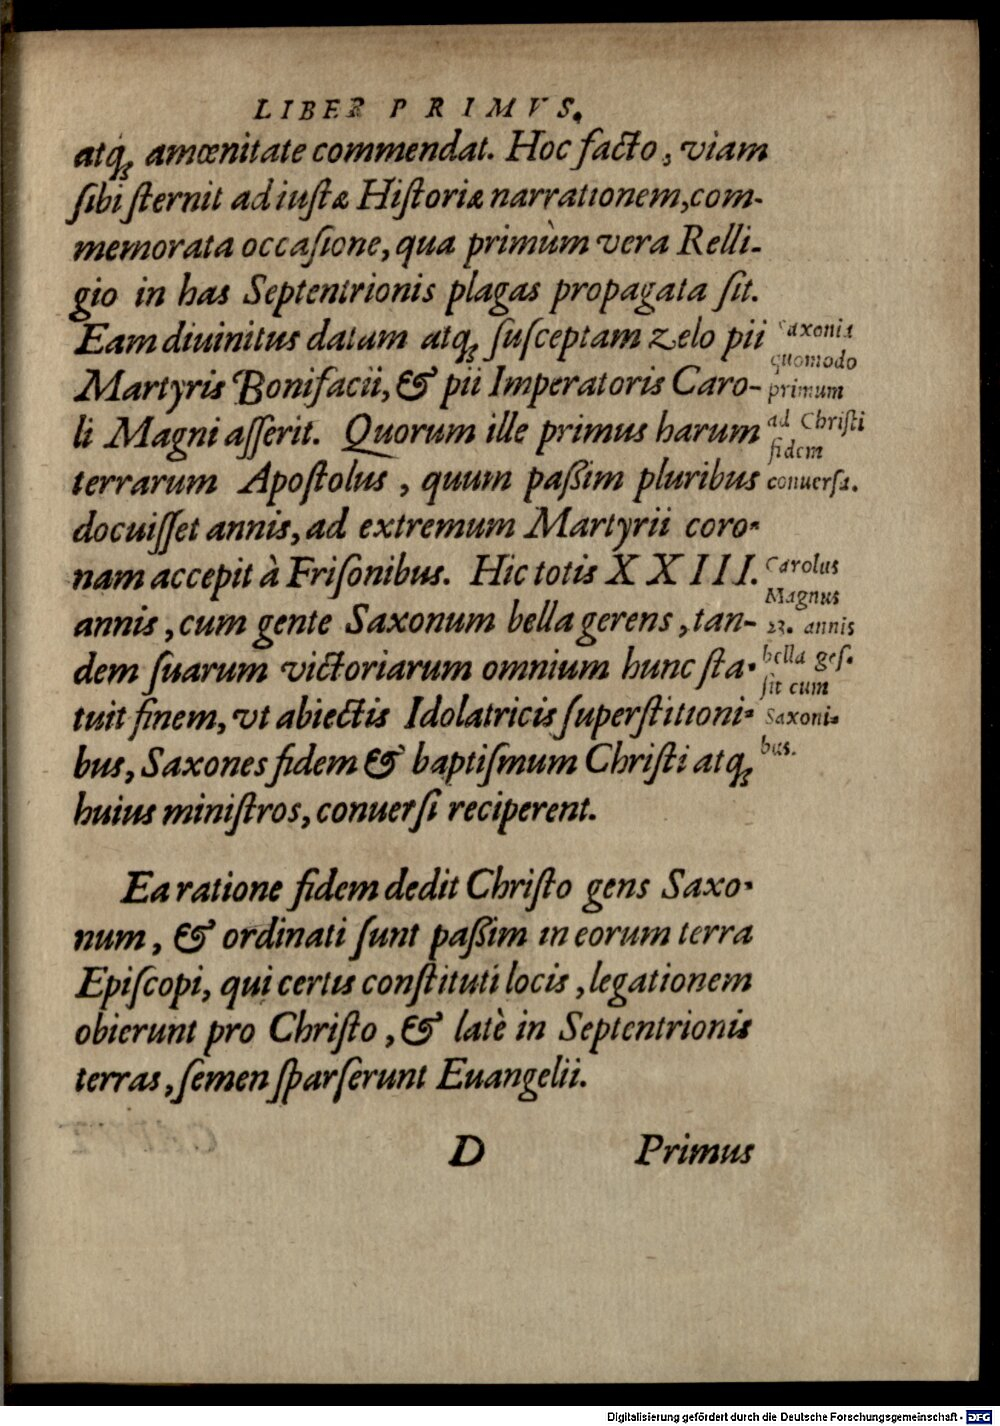 LIBER PRIMVS.
atq; amœnitate commendat. Hoc facto, viam
ſibi ſternit ad iuſtæ Hiſtoriæ narrationem, com-
memorata occaſione, qua primùm vera Relli-
gio in has Septentrionis plagas propagata ſit.
Eam diuinitus datam atq; ſuſceptam zelo pii
Martyris Bonifacii, & pii Imperatoris Caro-
li Magni aſſerit. Quorum ille primus harum
terrarum Apoſtolus, quum paßim pluribus
docuiſſet annis, ad extremum Martyrii coro-
nam accepit à Friſonibus. Hic totis XXIII.
annis, cum gente Saxonum bella gerens, tan-
dem ſuarum victoriarum omnium hunc ſta-
tuit finem, vt abiectis Idolatricis ſuperſtitioni-
bus, Saxones fidem & baptiſmum Chriſti atq;
huius miniſtros, conuerſi reciperent.
Saxonia
quomodo
primum
ad Chriſti
fidem
conuerſa.
Carolus
Magnus
23. annis
bella geſ-
ſit cum
Saxoni-
bus.
Ea ratione fidem dedit Chriſto gens Saxo-
num, & ordinati ſunt paßim in eorum terra
Epiſcopi, qui certis conſtituti locis, legationem
obierunt pro Chriſto, & latè in Septentrionis
terras, ſemen ſparſerunt Euangelii.
D Primus
Digitalisierung gefördert durch die Deutsche Forschungsgemeinschaft - DFG